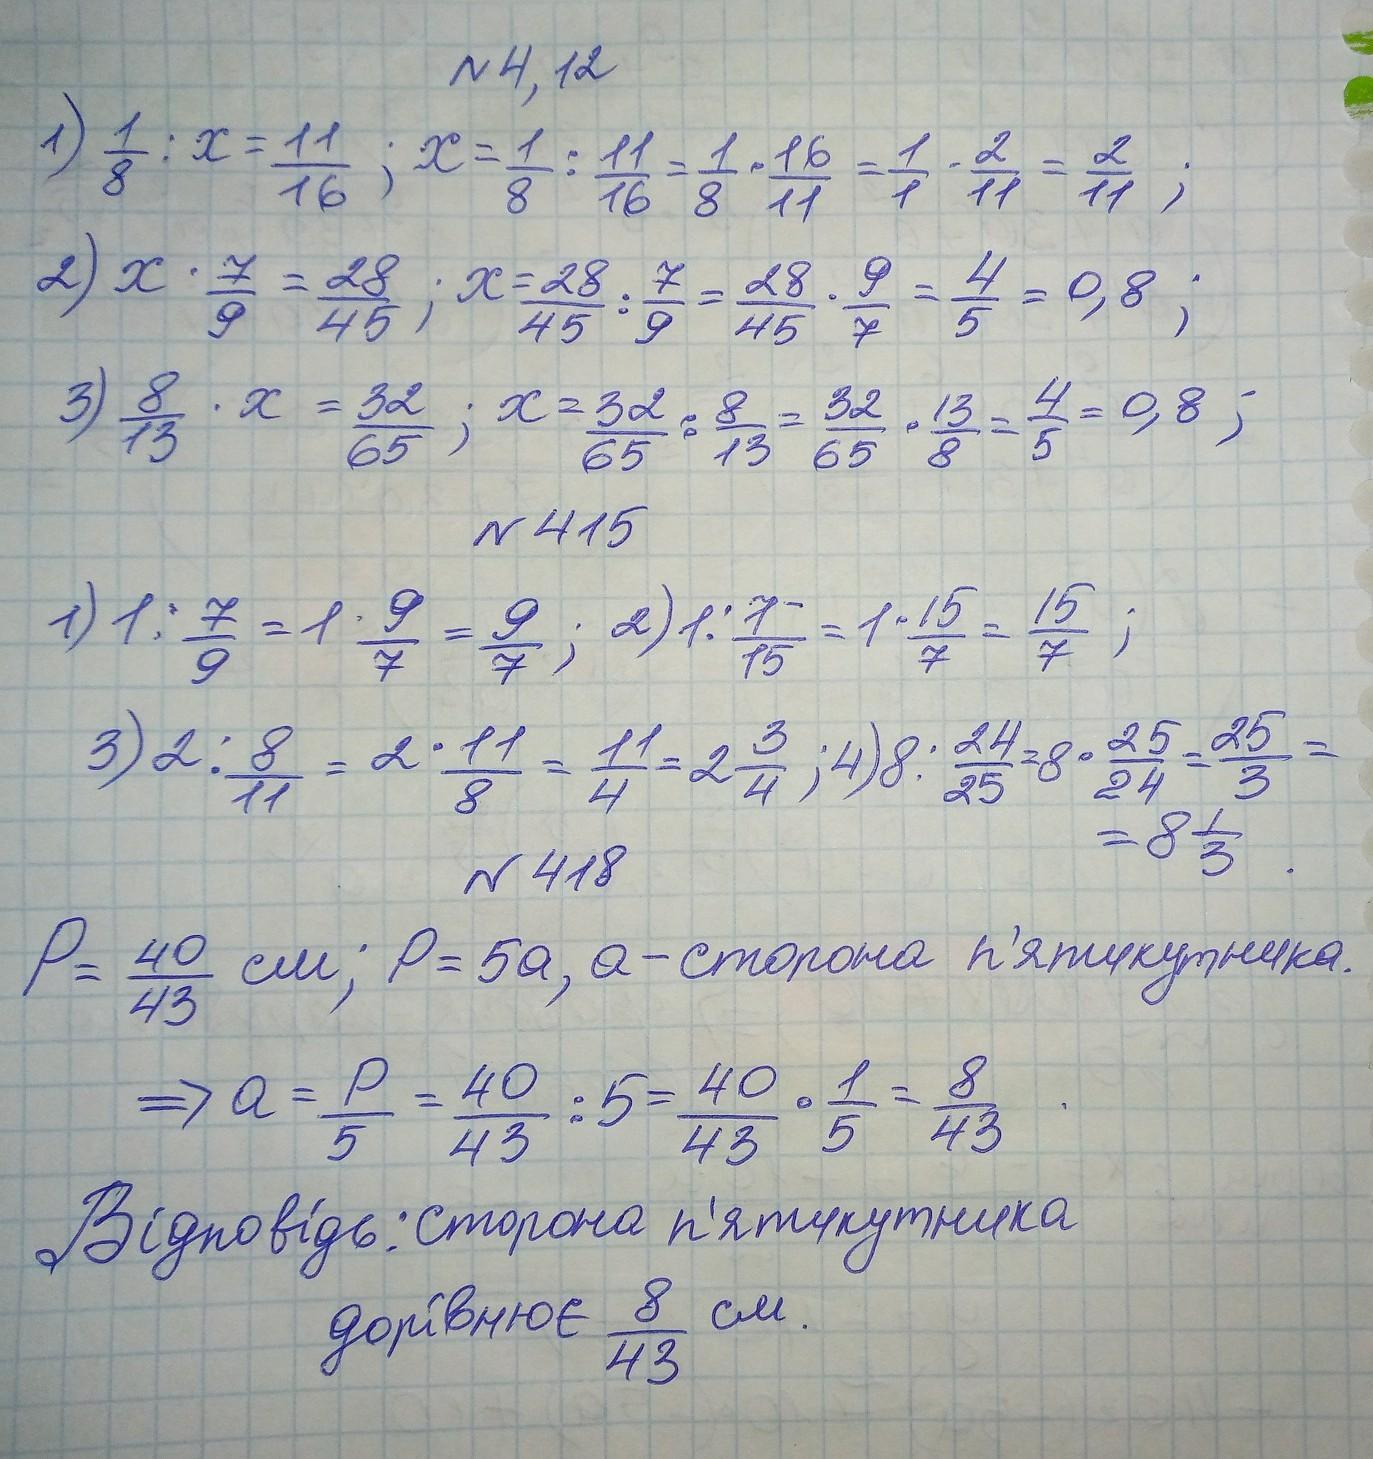 №4,12
1) 1/8 : x = 11/16 ; x = 1/8 : 11/16 = 1/8 · 16/11 = 1/1 · 2/11 = 2/11 ;
2) x · 7/9 = 28/45 ; x = 28/45 : 7/9 = 28/45 · 9/7 = 4/5 = 0,8 ;
3) 8/13 · x = 32/65 ; x = 32/65 : 8/13 = 32/65 · 13/8 = 4/5 = 0,8 ;
№415
1) 1 : 7/9 = 1 · 9/7 = 9/7 ; 2) 1 : 7/15 = 1 · 15/7 = 15/7 ;
3) 2 : 8/11 = 2 · 11/8 = 11/4 = 2 3/4 ; 4) 8 : 24/25 = 8 · 25/24 = 25/3 =
= 8 1/3 .
№418
P = 40/43 см; P = 5a, a – сторона п'ятикутника.
=> a = P/5 = 40/43 : 5 = 40/43 · 1/5 = 8/43 .
Відповідь: сторона п'ятикутника
дорівнює 8/43 см.